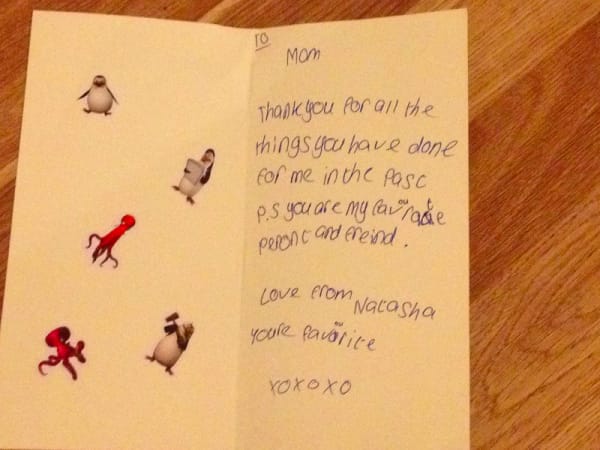 TO
Mom
Thank you for all the
things you have done
for me in the Past
P.S you are my favourate
peront and freind.
Love from Natasha
youre favourite
xoxoxo